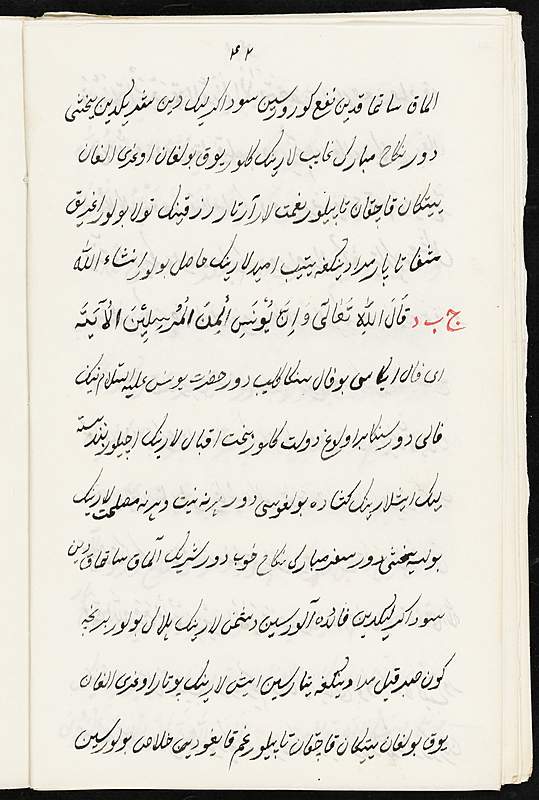 ۴۲
الماق ساتماقدین نفع کورورسین سوداکرلیک دین سفر لیکدین یخشی
دور نکاح مبارک غایب لارینک کلور یوق بولغان اوغری الغان
ییتکان قاچقان تاپیلور نعمت لار آرتار رزقینک تولا بولور اغریق
شفا تاپار مدادینکغه ییتیب امیدلارینک حاصل بولور انشاء الله
ج ب د قَالَ اللهُ تَعَالٰی وَ اِنَّ یُونُسَ لَمِنَ الْمُرْسَلِیْنَ الْاٰیَتَه
ای فال ایکاسی بو فال سنکا کلیب دور حضرت یونس علیه السلام نینک
فالی دور سنکا بر اولوغ دولت کلور بخت اقبال لارینک اچیلور بند بسته
لیک ایشلارینک کشاده بولغوسی دور هر نه نیت و هر نه مصلحت لارینک
بولسه یخشی دور سفر مبارک نکاح خوب دور شریک آلماق ساتماق دین
سوداکرلیکدین فائده آلورسین دشمن لارینک هلاک بولور بر نچه
کون صبر قیل مدادینکغه یتارسین ایش لارینک پوتار اوغری الغان
یوق بولغان ییتکان قاچقان تاپیلور غم قایغودین خلاص بولورسین